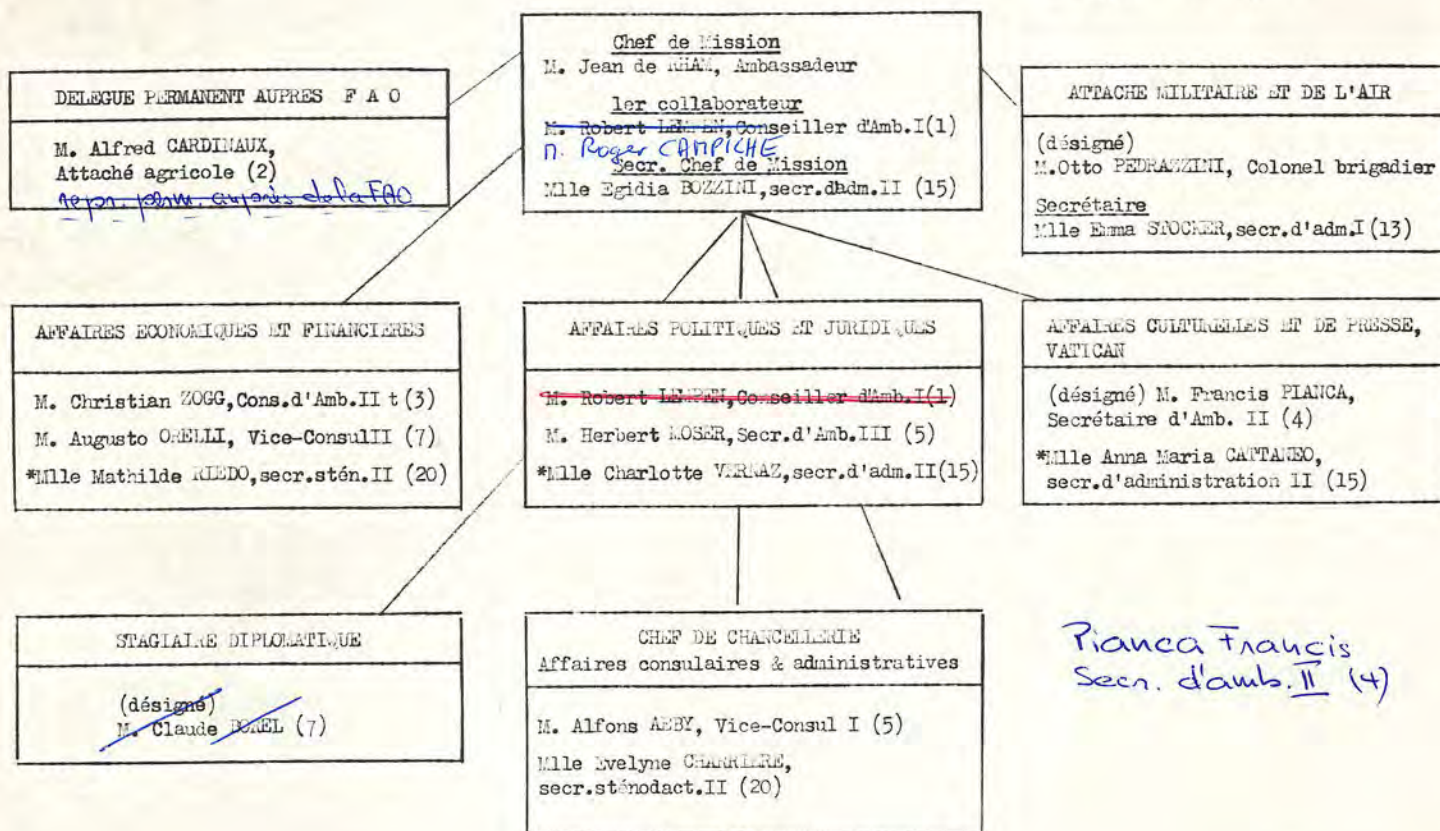 Chef de Mission
M. Jean de RHAM, Ambassadeur
1er collaborateur
M. Robert LEMPEN, Conseiller d'Amb.I(1)
M. Roger CAMPICHE
Secr. Chef de Mission
Mlle Egidia BOZZINI, secr.dadm.II (15)
DELEGUE PERMANENT AUPRES F A O
M. Alfred CARDINAUX,
Attaché agricole (2)
repr. perm. auprès de la FAO
ATTACHE MILITAIRE ET DE L'AIR
(désigné)
M.Otto PEDRAZZINI, Colonel brigadier
Secrétaire
Mlle Emma STOCKER, secr.d'adm.I (13)
AFFAIRES ECONOMIQUES ET FINANCIERES
M. Christian ZOGG, Cons.d'Amb.II t (3)
M. Augusto ORELLI, Vice-ConsulII (7)
*Mlle Mathilde RIEDO, secr.stén.II (20)
AFFAIRES POLITIQUES ET JURIDIQUES
M. Robert LEMPEN, Conseiller d'Amb.I(1)
M. Herbert MOSER, Secr.d'Amb.III (5)
*Mlle Charlotte VERNAZ, secr.d'adm.II(15)
AFFAIRES CULTURELLES ET DE PRESSE,
VATICAN
(désigné) M. Francis PIANCA,
Secrétaire d'Amb. II (4)
*Mlle Anna Maria CATTANEO,
secr.d'administration II (15)
STAGIAIRE DIPLOMATIQUE
(désigné)
M. Claude BOREL (7)
CHEF DE CHANCELLERIE
Affaires consulaires & administratives
M. Alfons AEBY, Vice-Consul I (5)
Mlle Evelyne CHARRIERE,
secr.sténodact.II (20)
Pianca Francis
Secr. d'amb. II (4)